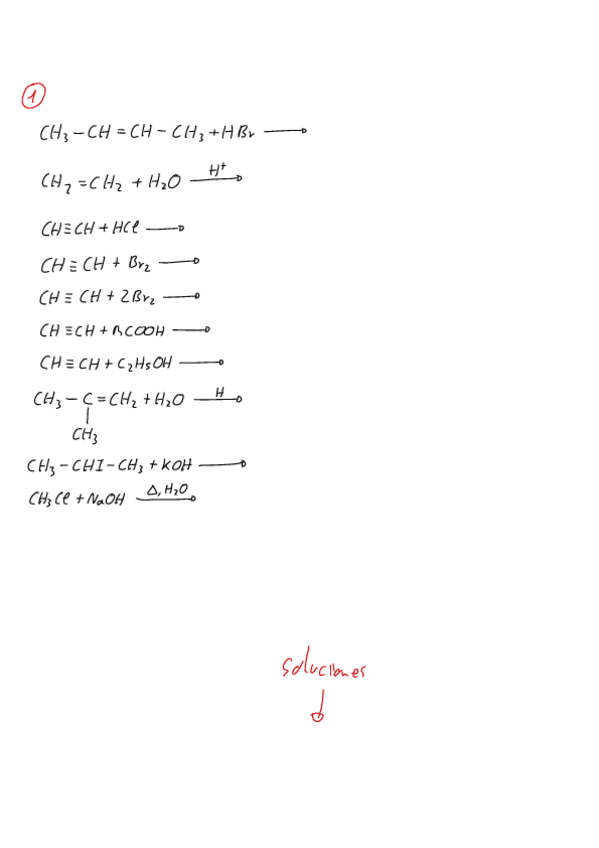 1
CH₃–CH=CH–CH₃+HBr →
CH₂=CH₂ + H₂O →(H⁺)
CH≡CH + HCl →
CH≡CH + Br₂ →
CH≡CH + 2Br₂ →
CH≡CH + RCOOH →
CH≡CH + C₂H₅OH →
CH₃–C=CH₂ + H₂O →(H)
|
CH₃
CH₃–CHI–CH₃ + KOH →
CH₃Cl + NaOH →(Δ, H₂O)
Soluciones
↓